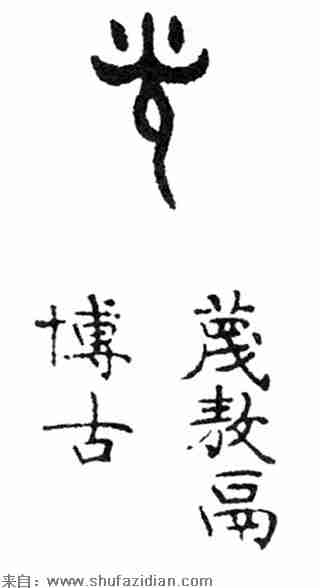 蔑敖鬲
博古
来自：www.shufazidian.com